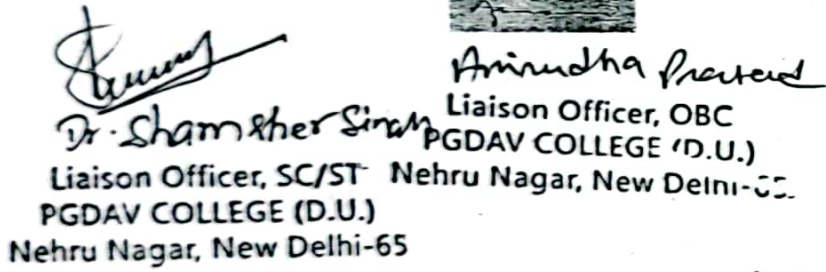 Dr. Shamsher Singh
Liaison Officer, SC/ST
PGDAV COLLEGE (D.U.)
Nehru Nagar, New Delhi-65
Anirudha Prasad
Liaison Officer, OBC
PGDAV COLLEGE (D.U.)
Nehru Nagar, New Delhi-